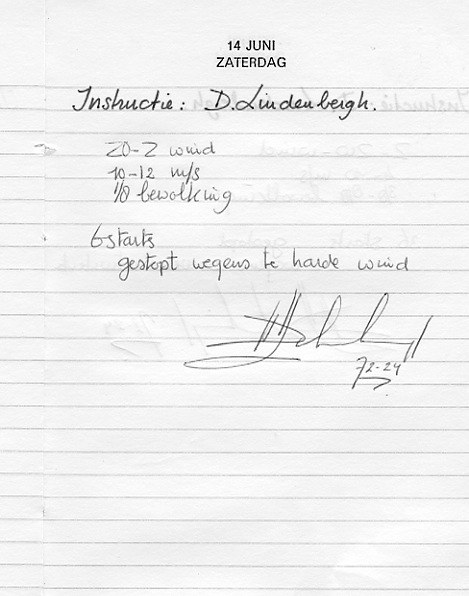 14 JUNI
ZATERDAG
Instructie: D. Lindenbergh.
ZO-Z wind
10-12 m/s
1/8 bewolking
6 starts
gestopt wegens te harde wind
72-24